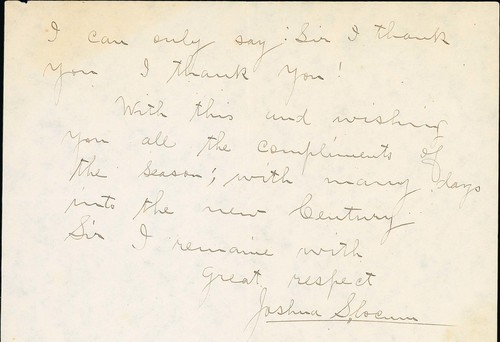 I can only say: Sir I thank
you I thank you!
With this and wishing
you all the compliments of
the season; with many days
into the new Century
Sir I remain with
great respect
Joshua Slocum